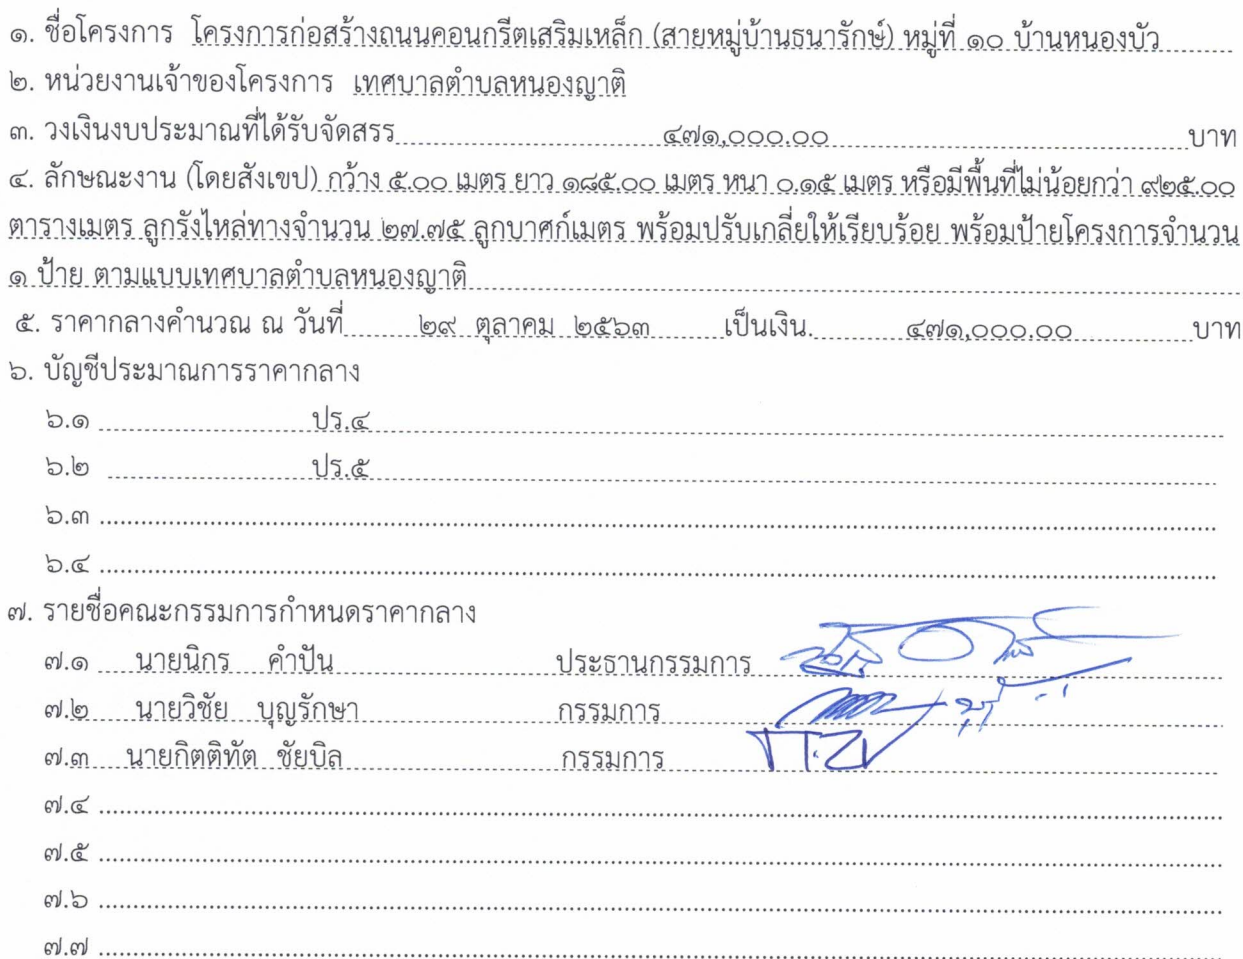 ๑. ชื่อโครงการ โครงการก่อสร้างถนนคอนกรีตเสริมเหล็ก (สายหมู่บ้านธนารักษ์) หมู่ที่ ๑๐ บ้านหนองบัว
๒. หน่วยงานเจ้าของโครงการ เทศบาลตำบลหนองญาติ
๓. วงเงินงบประมาณที่ได้รับจัดสรร ๔๗๑,๐๐๐.๐๐ บาท
๔. ลักษณะงาน (โดยสังเขป) กว้าง ๕.๐๐ เมตร ยาว ๑๘๕.๐๐ เมตร หนา ๐.๑๕ เมตร หรือมีพื้นที่ไม่น้อยกว่า ๙๒๕.๐๐
ตารางเมตร ลูกรังไหล่ทางจำนวน ๒๗.๗๕ ลูกบาศก์เมตร พร้อมปรับเกลี่ยให้เรียบร้อย พร้อมป้ายโครงการจำนวน
๑ ป้าย ตามแบบเทศบาลตำบลหนองญาติ
๕. ราคากลางคำนวณ ณ วันที่ ๒๙ ตุลาคม ๒๕๖๓ เป็นเงิน. ๔๗๑,๐๐๐.๐๐ บาท
๖. บัญชีประมาณการราคากลาง
๖.๑ ปร.๔
๖.๒ ปร.๕
๖.๓
๖.๔
๗. รายชื่อคณะกรรมการกำหนดราคากลาง
๗.๑ นายนิกร คำปัน ประธานกรรมการ
๗.๒ นายวิชัย บุญรักษา กรรมการ
๗.๓ นายกิตติทัต ชัยบิล กรรมการ
๗.๔
๗.๕
๗.๖
๗.๗